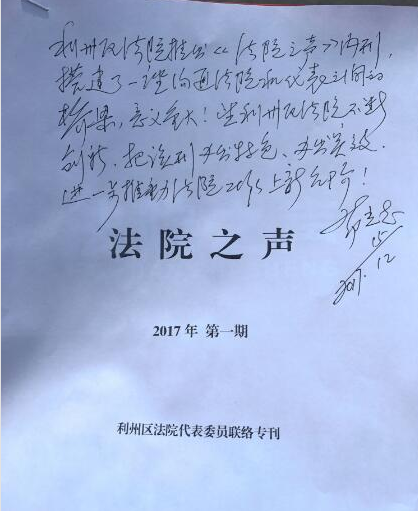 利州区法院推出《法院之声》内刊,
搭建了一座沟通法院和代表之间的
桥梁,意义重大!望利州区法院不断
创新,把该刊办出特色、办出实效,
进一步推动法院工作上新台阶!
法院之声
2017年 第一期
利州区法院代表委员联络专刊